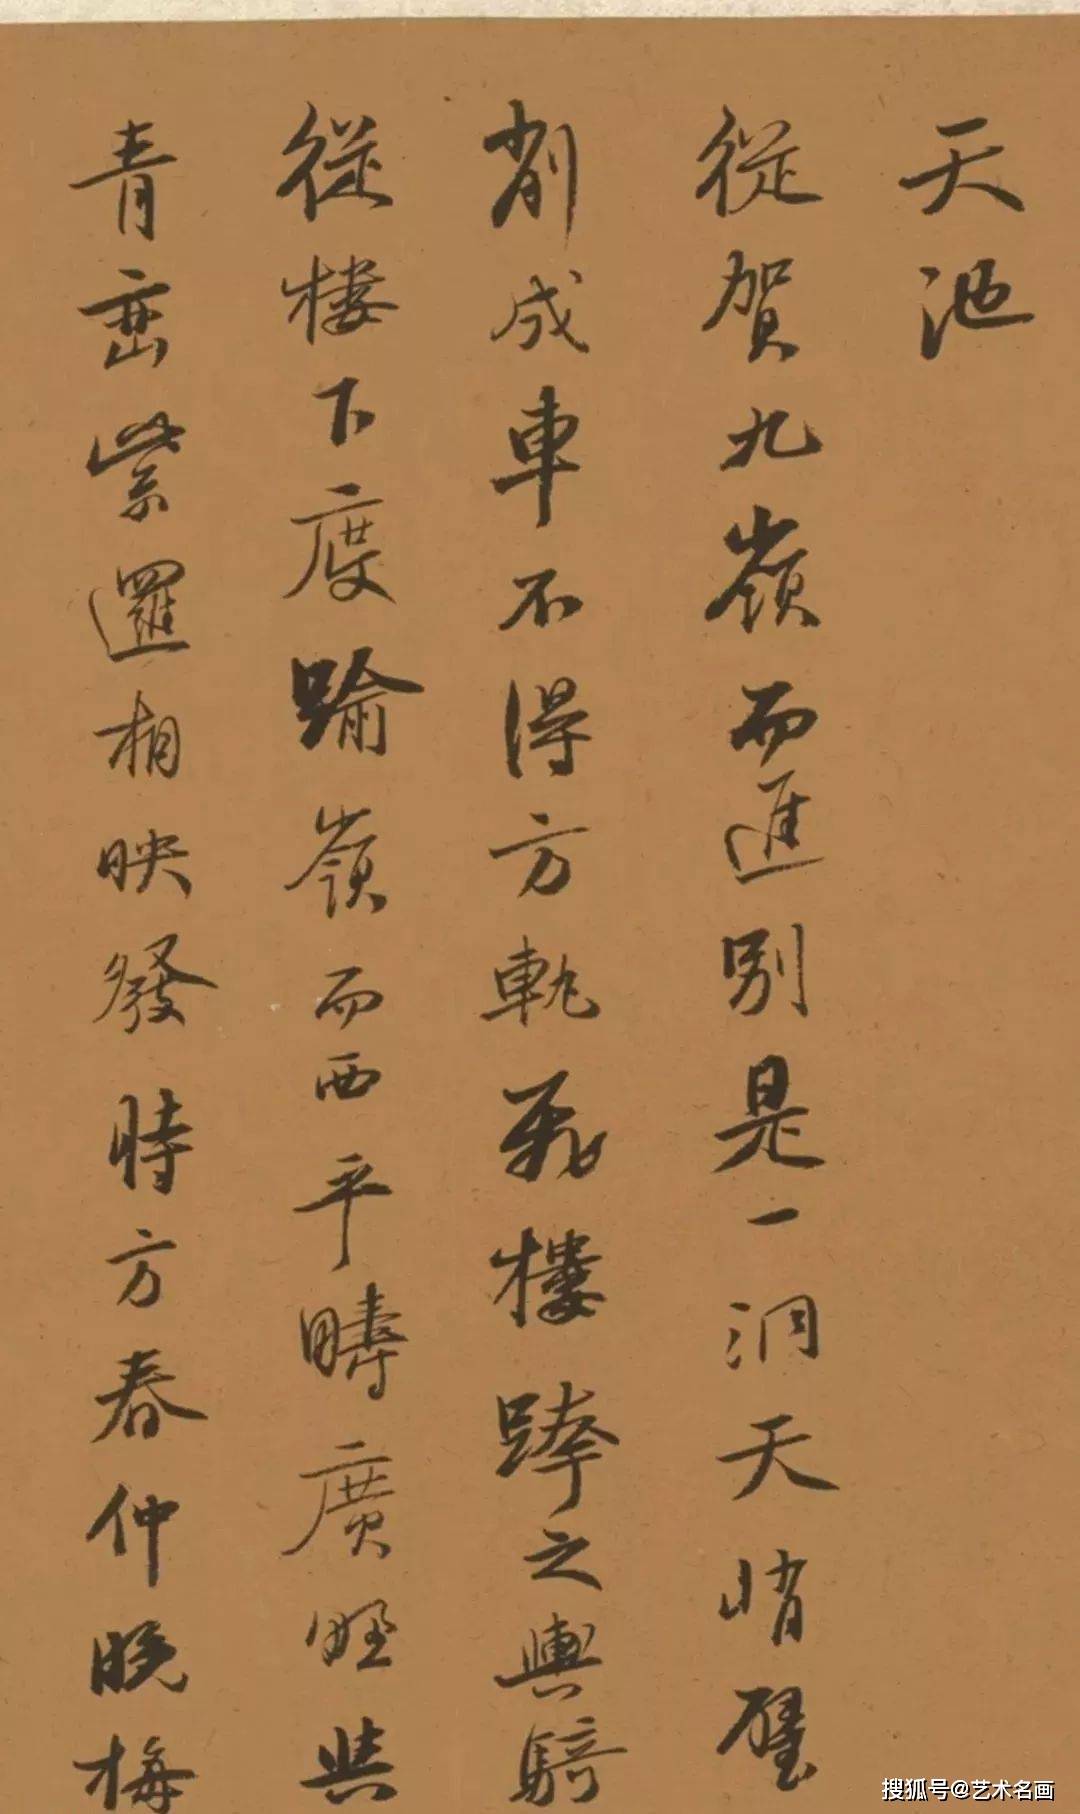 天池
從賀九嶺而進別是一洞天峭壁
削成車不得方軌飛樓跨之輿騎
從樓下度踰嶺而西平疇廣野與
青巒紫邏相映發時方春仲晚梅
搜狐号@艺术名画